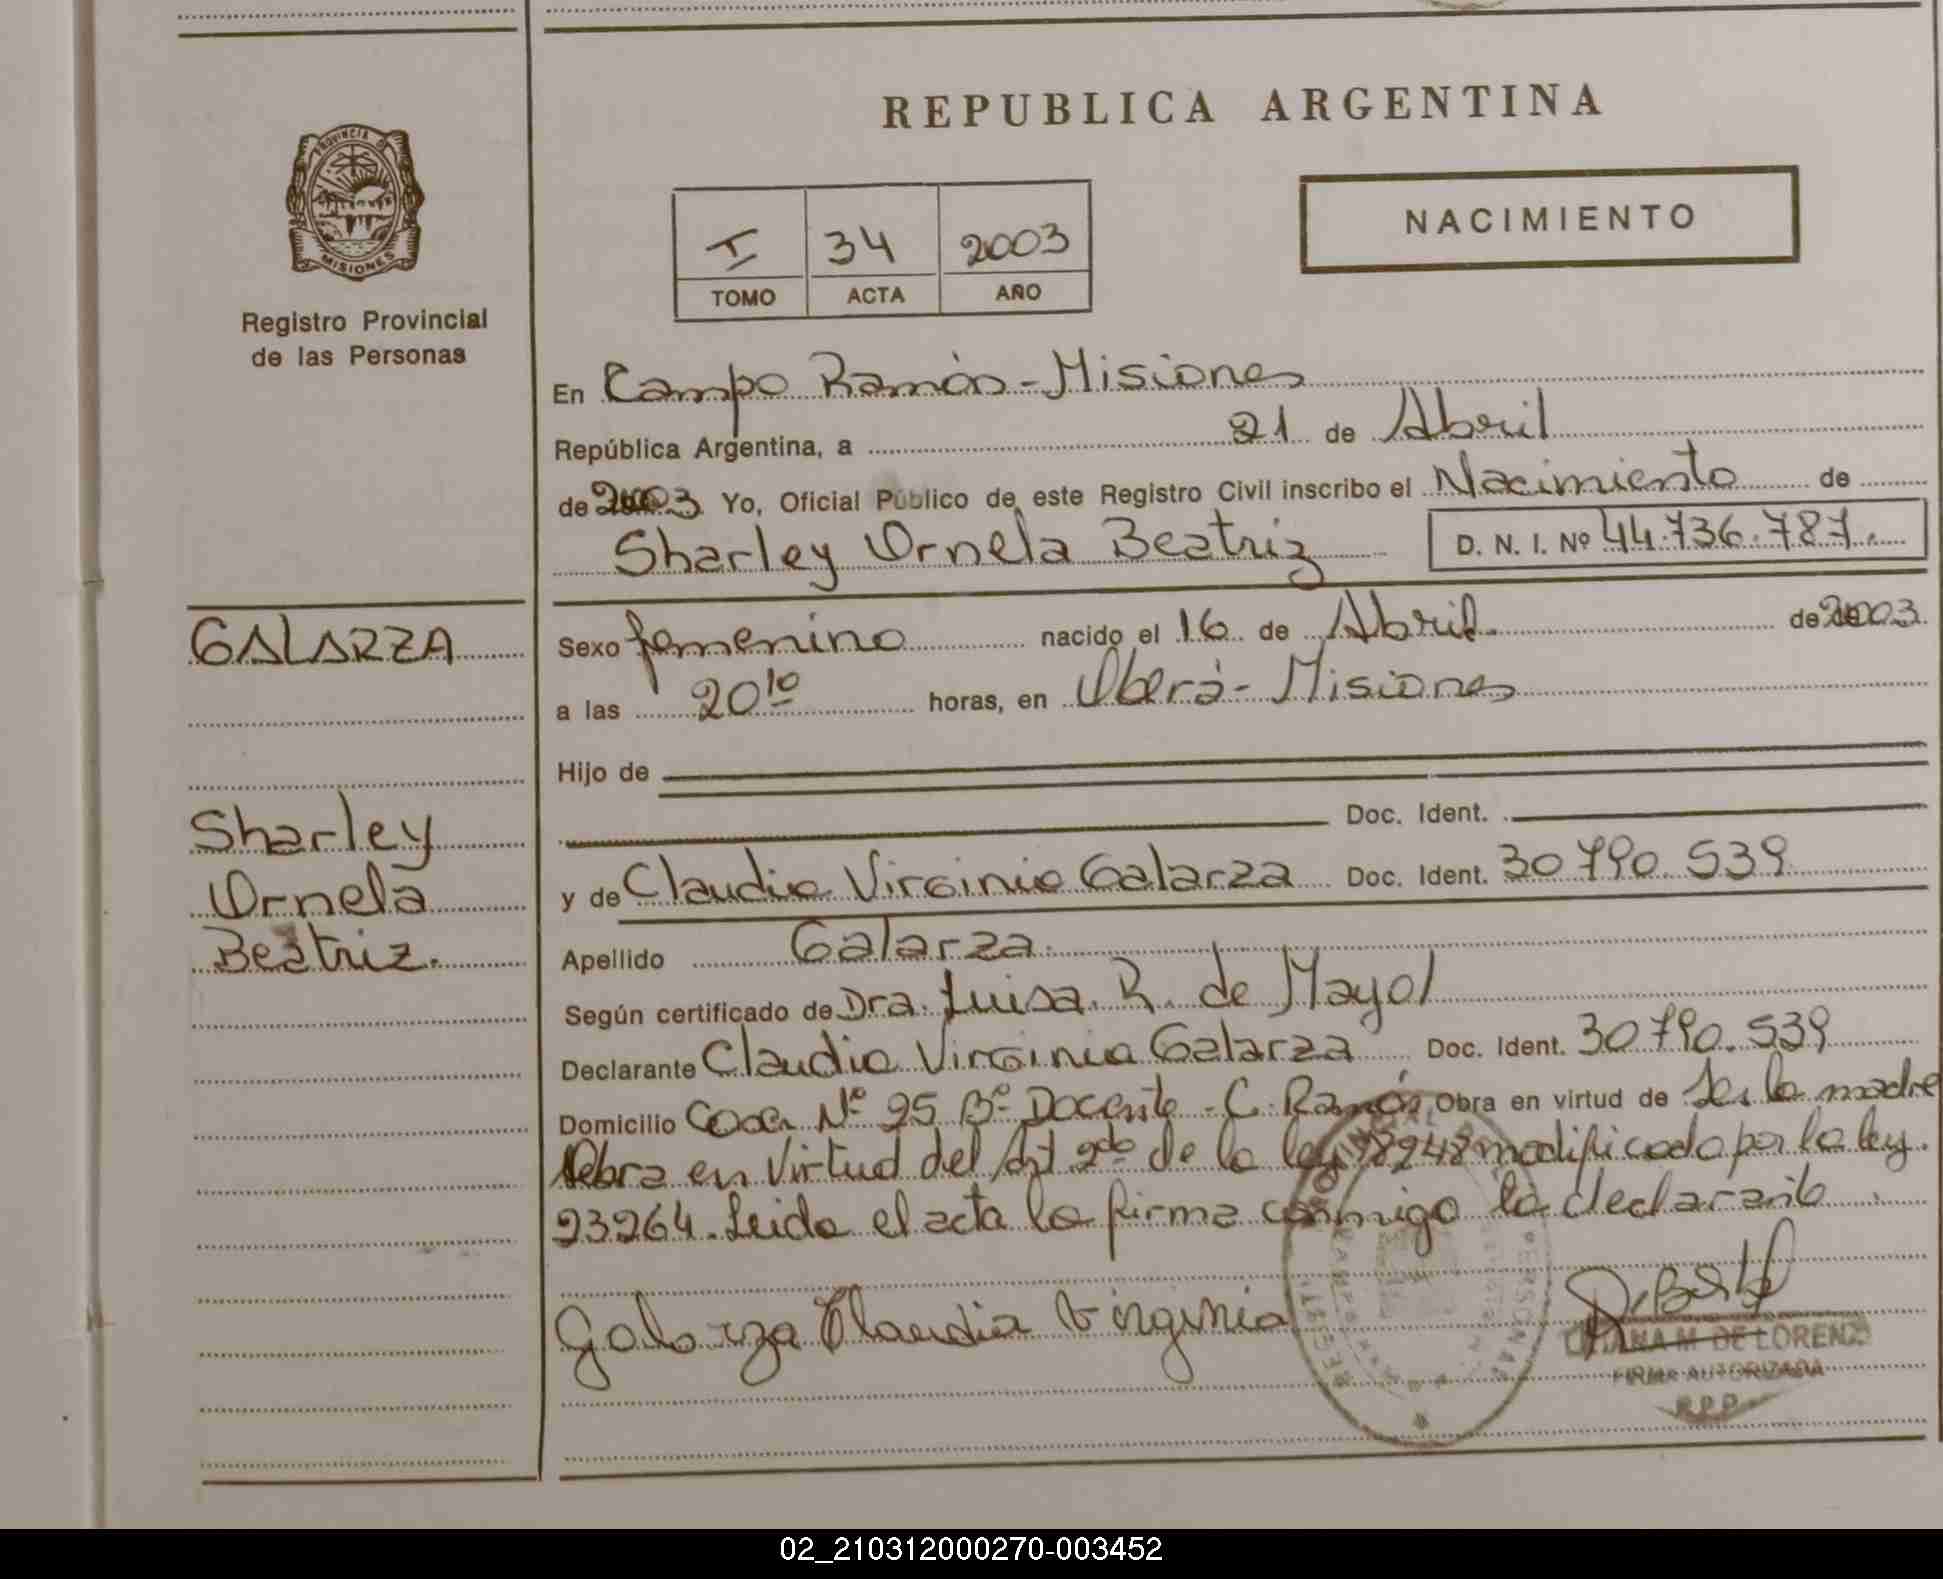 REPUBLICA ARGENTINA
PROVINCIA DE
MISIONES
Registro Provincial
de las Personas
I 34 2003
TOMO ACTA AÑO
NACIMIENTO
En Campo Ramón - Misiones
República Argentina, a 21 de Abril
de 2003 Yo, Oficial Público de este Registro Civil inscribo el Nacimiento de
Sharley Ornela Beatriz D. N. I. Nº 44.736.787.
GALARZA
Sharley
Ornela
Beatriz.
Sexo femenino nacido el 16 de Abril de 2003
a las 20 10 horas, en Oberá - Misiones
Hijo de
Doc. Ident.
y de Claudia Virginia Galarza Doc. Ident. 30 790. 539
Apellido Galarza
Según certificado de Dra. Luisa R. de Mayol
Declarante Claudia Virginia Galarza Doc. Ident. 30 790. 539
Domicilio Casa Nº 25 Bº Docente - C. Ramón Obra en virtud de Ser la madre
Obra en Virtud del Art 2do de la ley 18248 modificado por la ley
23264. Leida el acta la firma conmigo la declarante
Galarza Claudia Virginia
M. DE LORENZO
FIRMA AUTORIZADA
R.P.P.
02_210312000270-003452